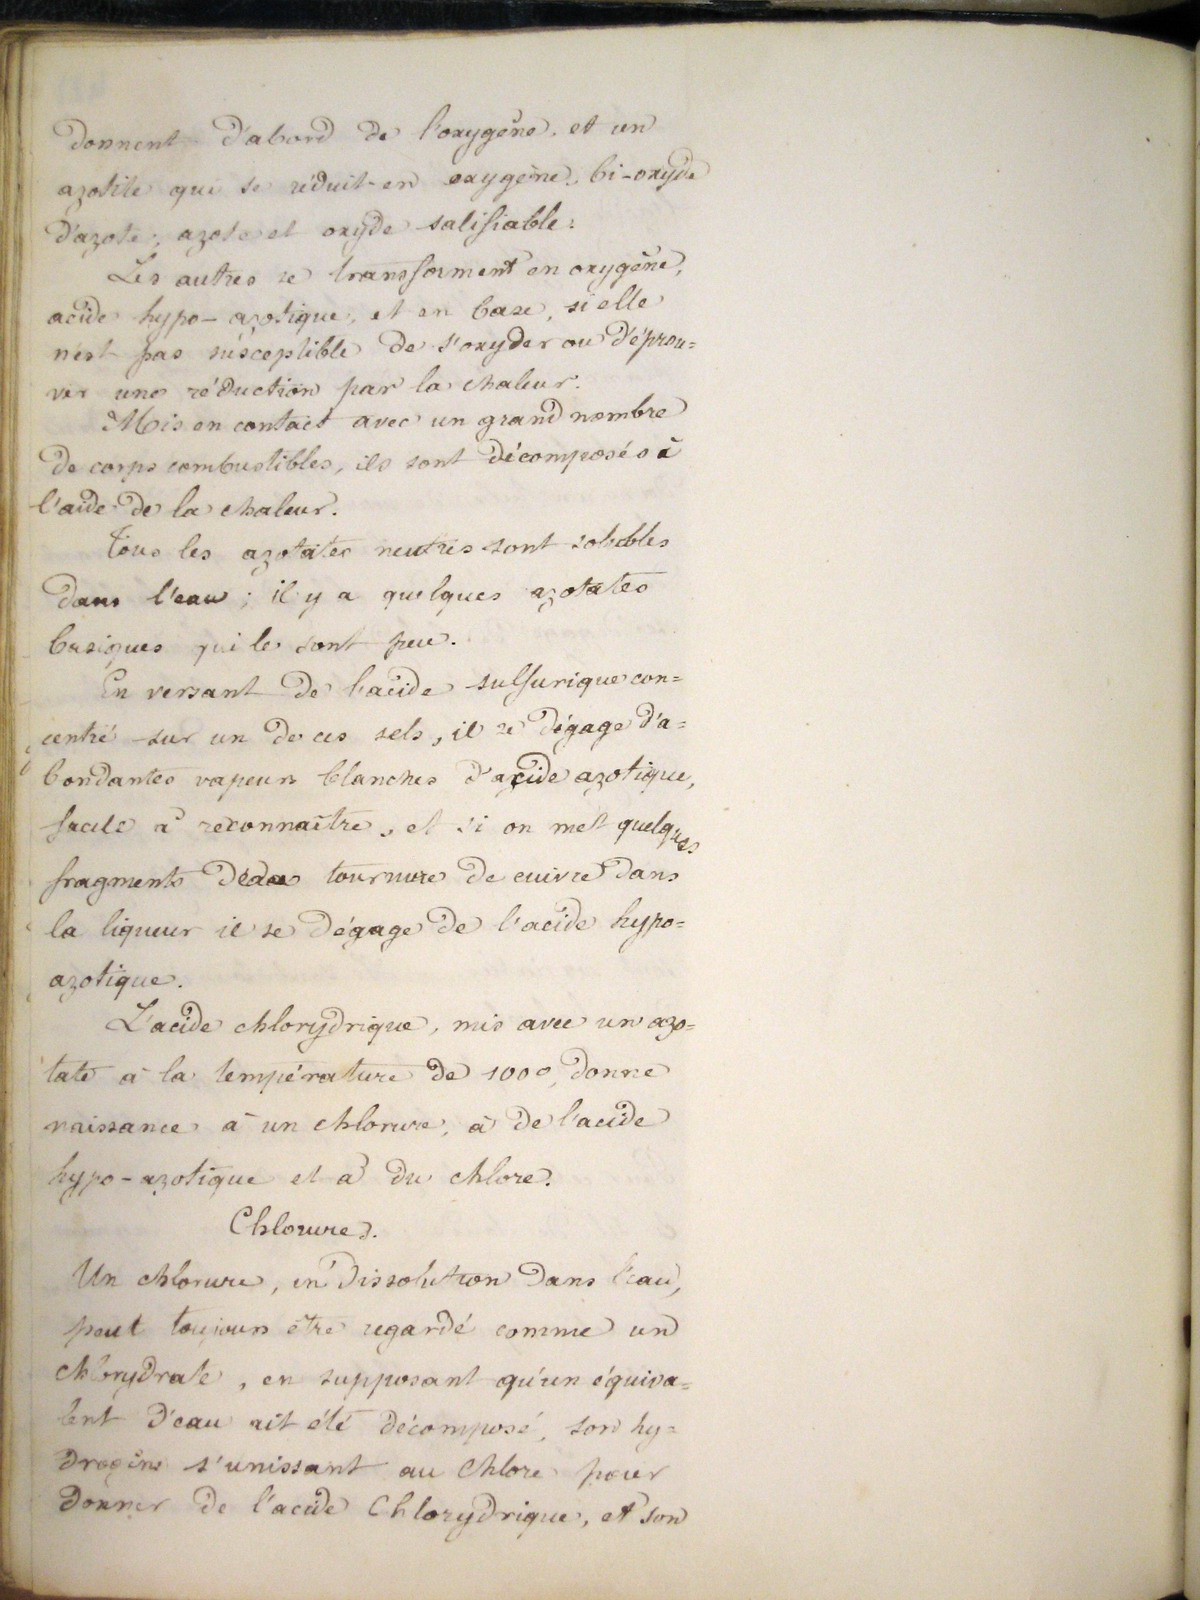 donnent d'abord de l'oxygène, et un
azotite qui se réduit en oxygène, bi-oxyde
d'azote, azote et oxyde salifiable.
Les autres se transforment en oxygène,
acide hypo-azotique, et en base, si elle
n'est pas susceptible de s'oxyder ou d'éprou=
ver une réduction par la chaleur.
Mis en contact avec un grand nombre
de corps combustibles, ils sont décomposés à
l'aide de la chaleur.
Tous les azotates neutres sont solubles
dans l'eau ; il y a quelques azotates
basiques qui le sont peu.
En versant de l'acide sulfurique con=
centré sur un de ces sels, il se dégage d'a=
bondantes vapeurs blanches d'acide azotique,
facile à reconnaître, et si on met quelques
fragments de tournure de cuivre dans
la liqueur il se dégage de l'acide hypo=
azotique.
L'acide chlorydrique, mis avec un azo=
tate à la température de 100°, donne
naissance à un chlorure, à de l'acide
hypo-azotique et à du chlore.
Chlorures.
Un chlorure, en dissolution dans l'eau,
peut toujours être regardé comme un
chlorydrate, en supposant qu'un équiva=
lent d'eau ait été décomposé, son hy=
drogène s'unissant au chlore pour
donner de l'acide Chlorydrique, et son